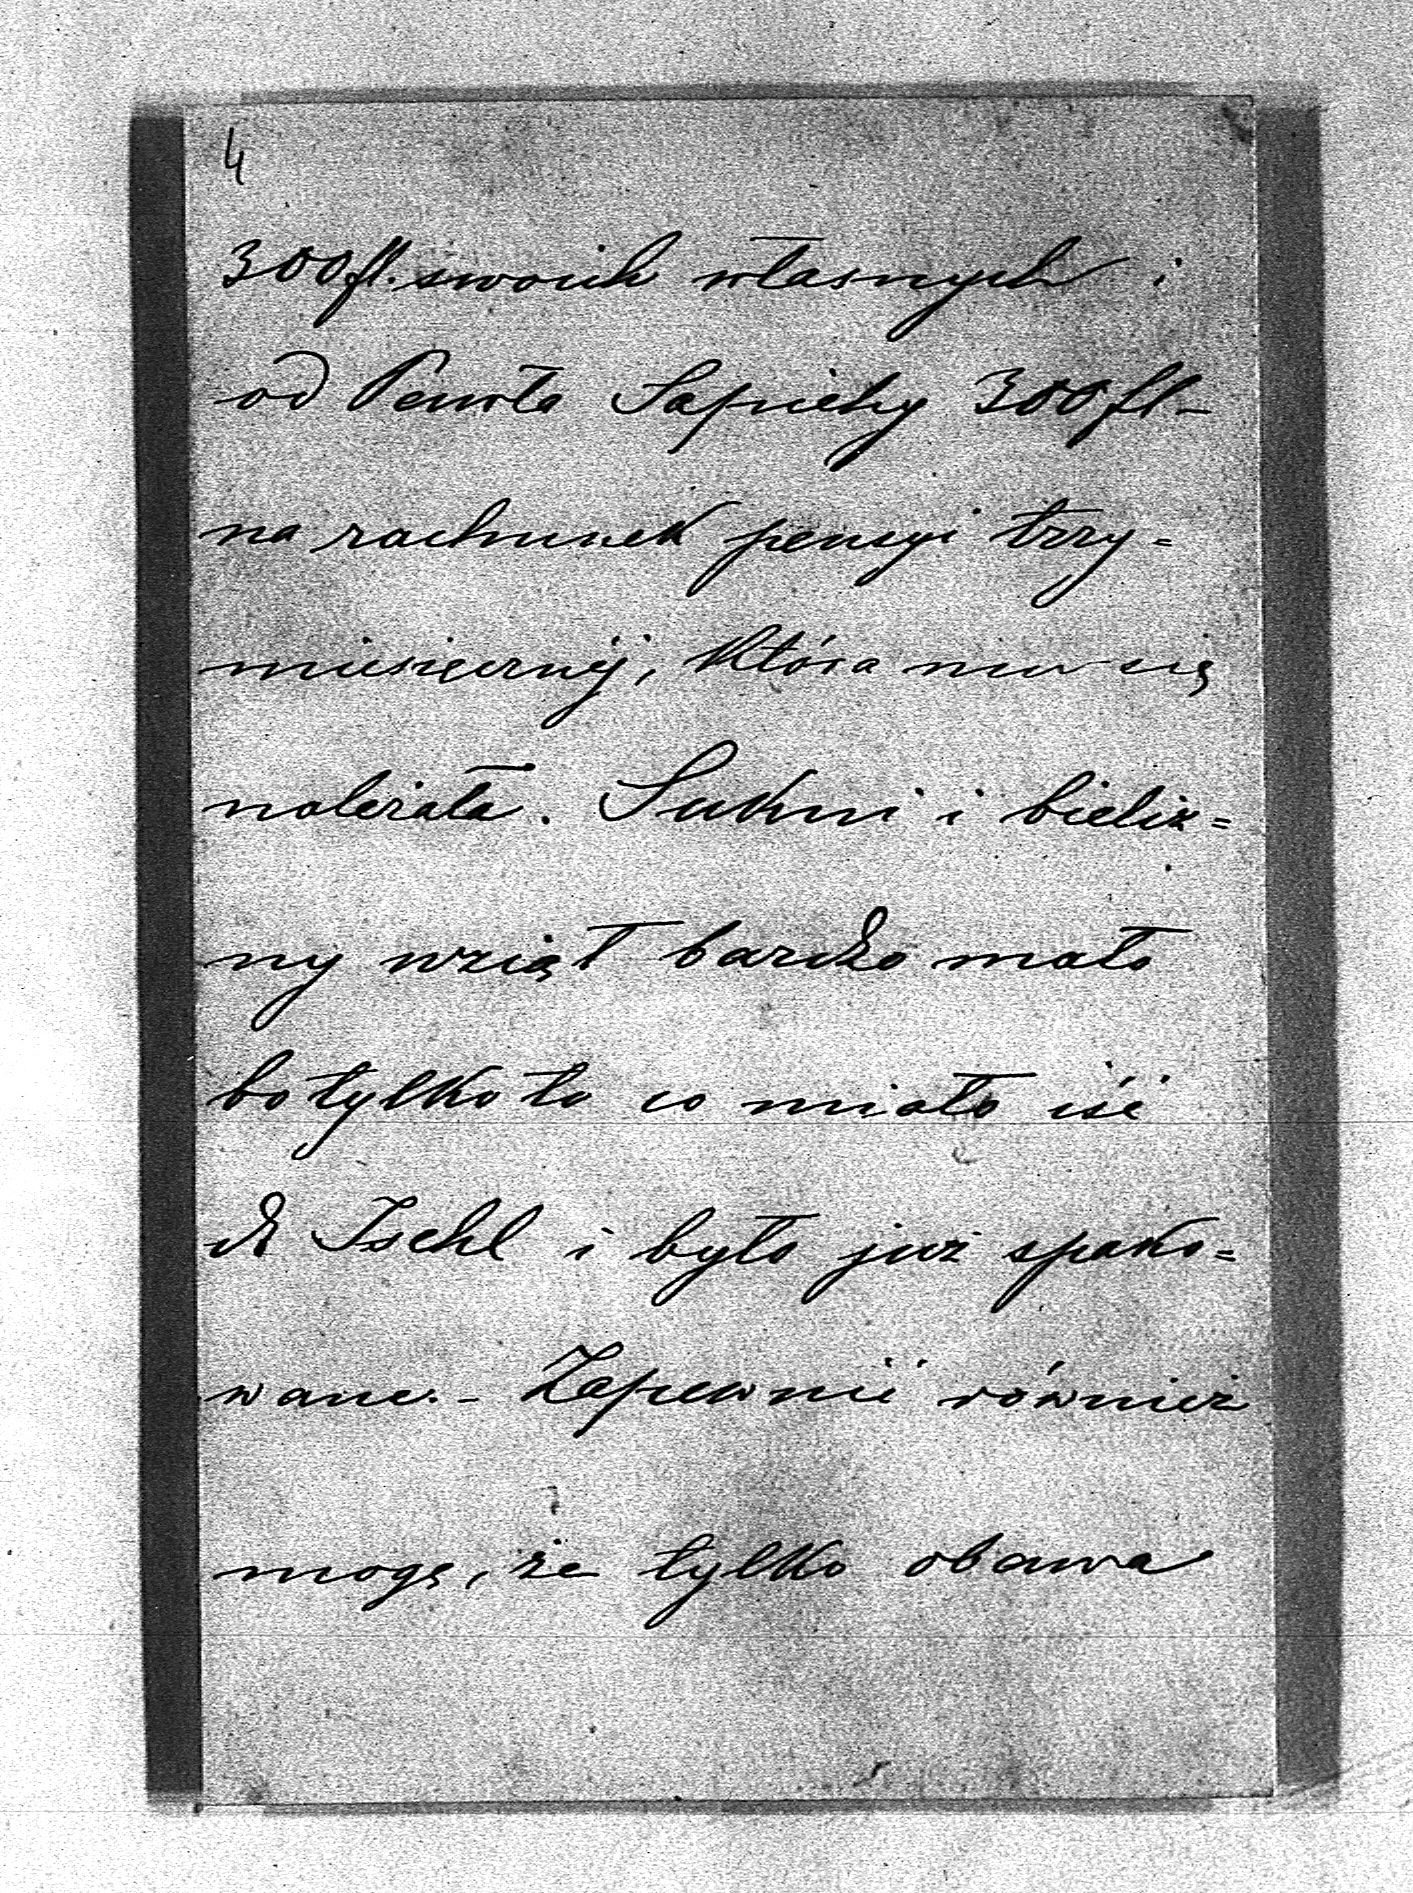 4
300 fl. swoich własnych i
od Pawła Sapiehy 300 fl –
na rachunek pensyi trzy=
miesięcznéj, która mu się
należała. Sukni i bieliz=
ny wziął bardzo mało
bo tylko to co miało iść
do Ischl i było już spako=
wane. – Zapewnić również
mogę, że tylko obawa